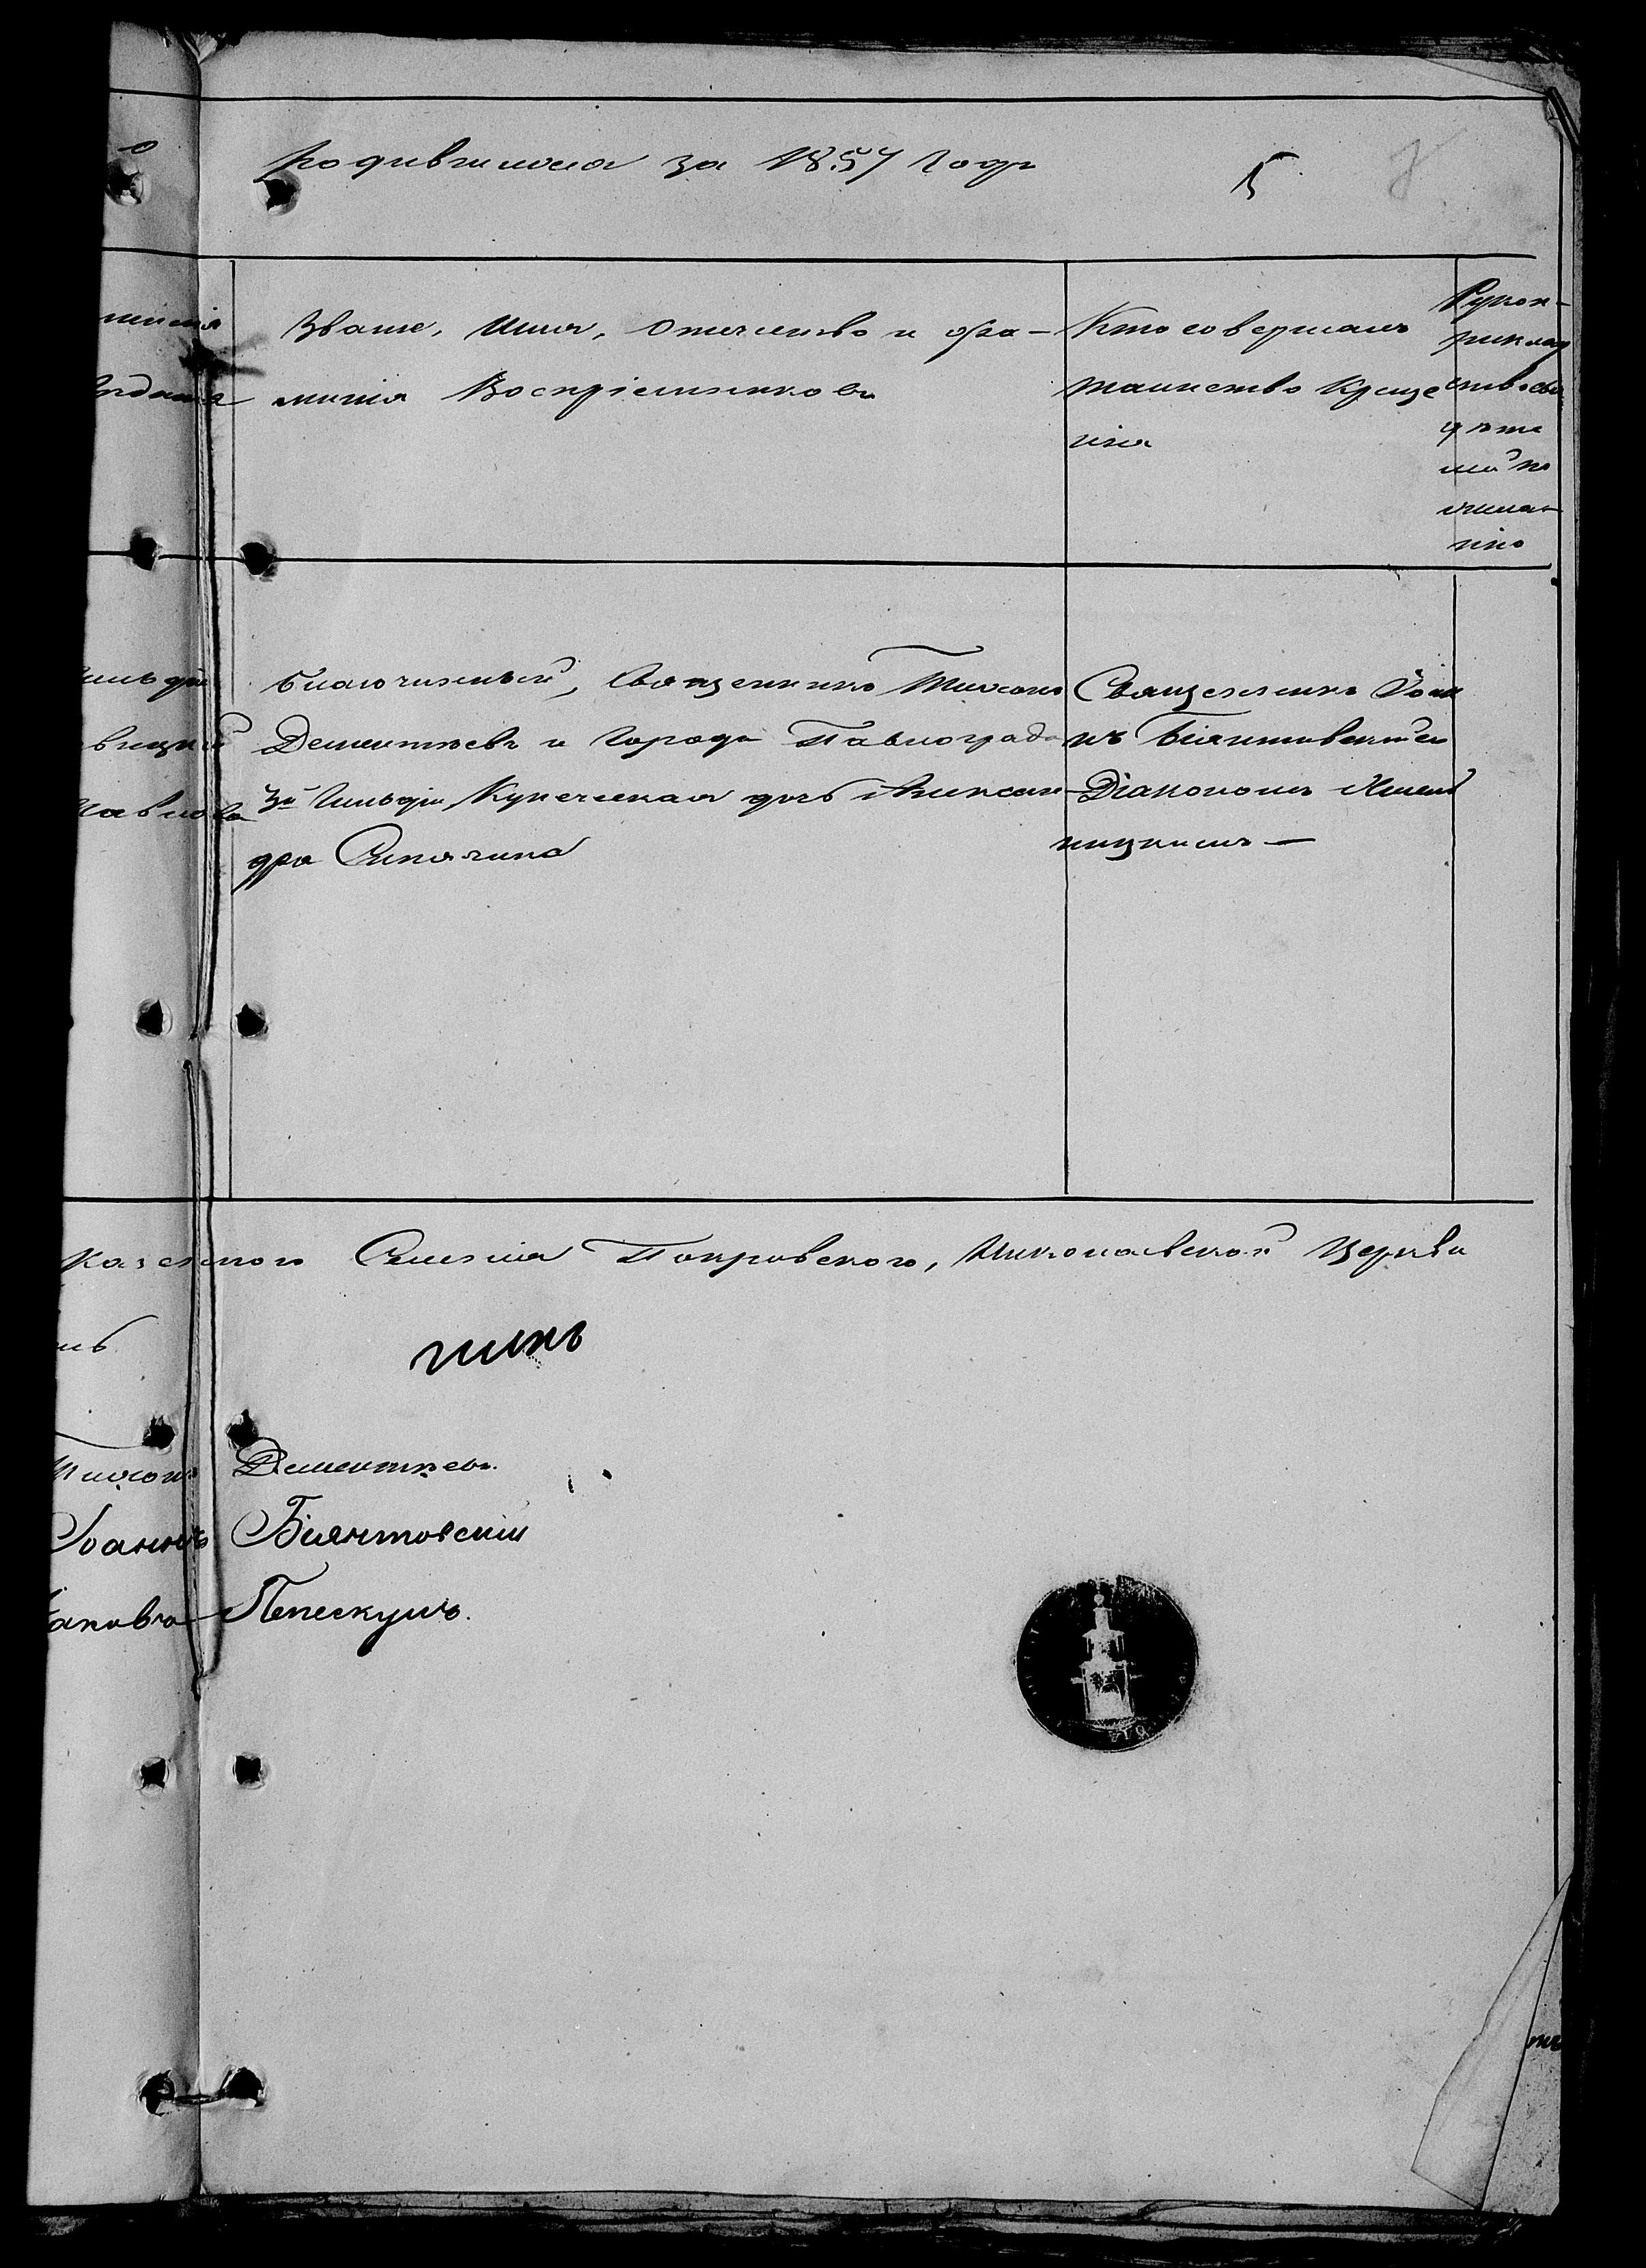 родившихся за 1857 Годъ
5
Званіе, Имя, Отчество и фа-
милія Воспріемниковъ
Кто совершалъ
таинство Креще
нія
Рукоп-
риклад
ство сви
дѣте
лей по
желан
нію
Благочинный, Священникъ Тихонъ
Дементьевъ и Города Павлограда
3й Гильдіи Купеческая дочь Алексан-
дра
Священникъ Іоан
нъ Біянтовскій съ
Діакономъ
казенного Селенія Покровского, Николаевской Церкви
Тихонъ Дементьевъ.
Іоаннъ Біянтовскій